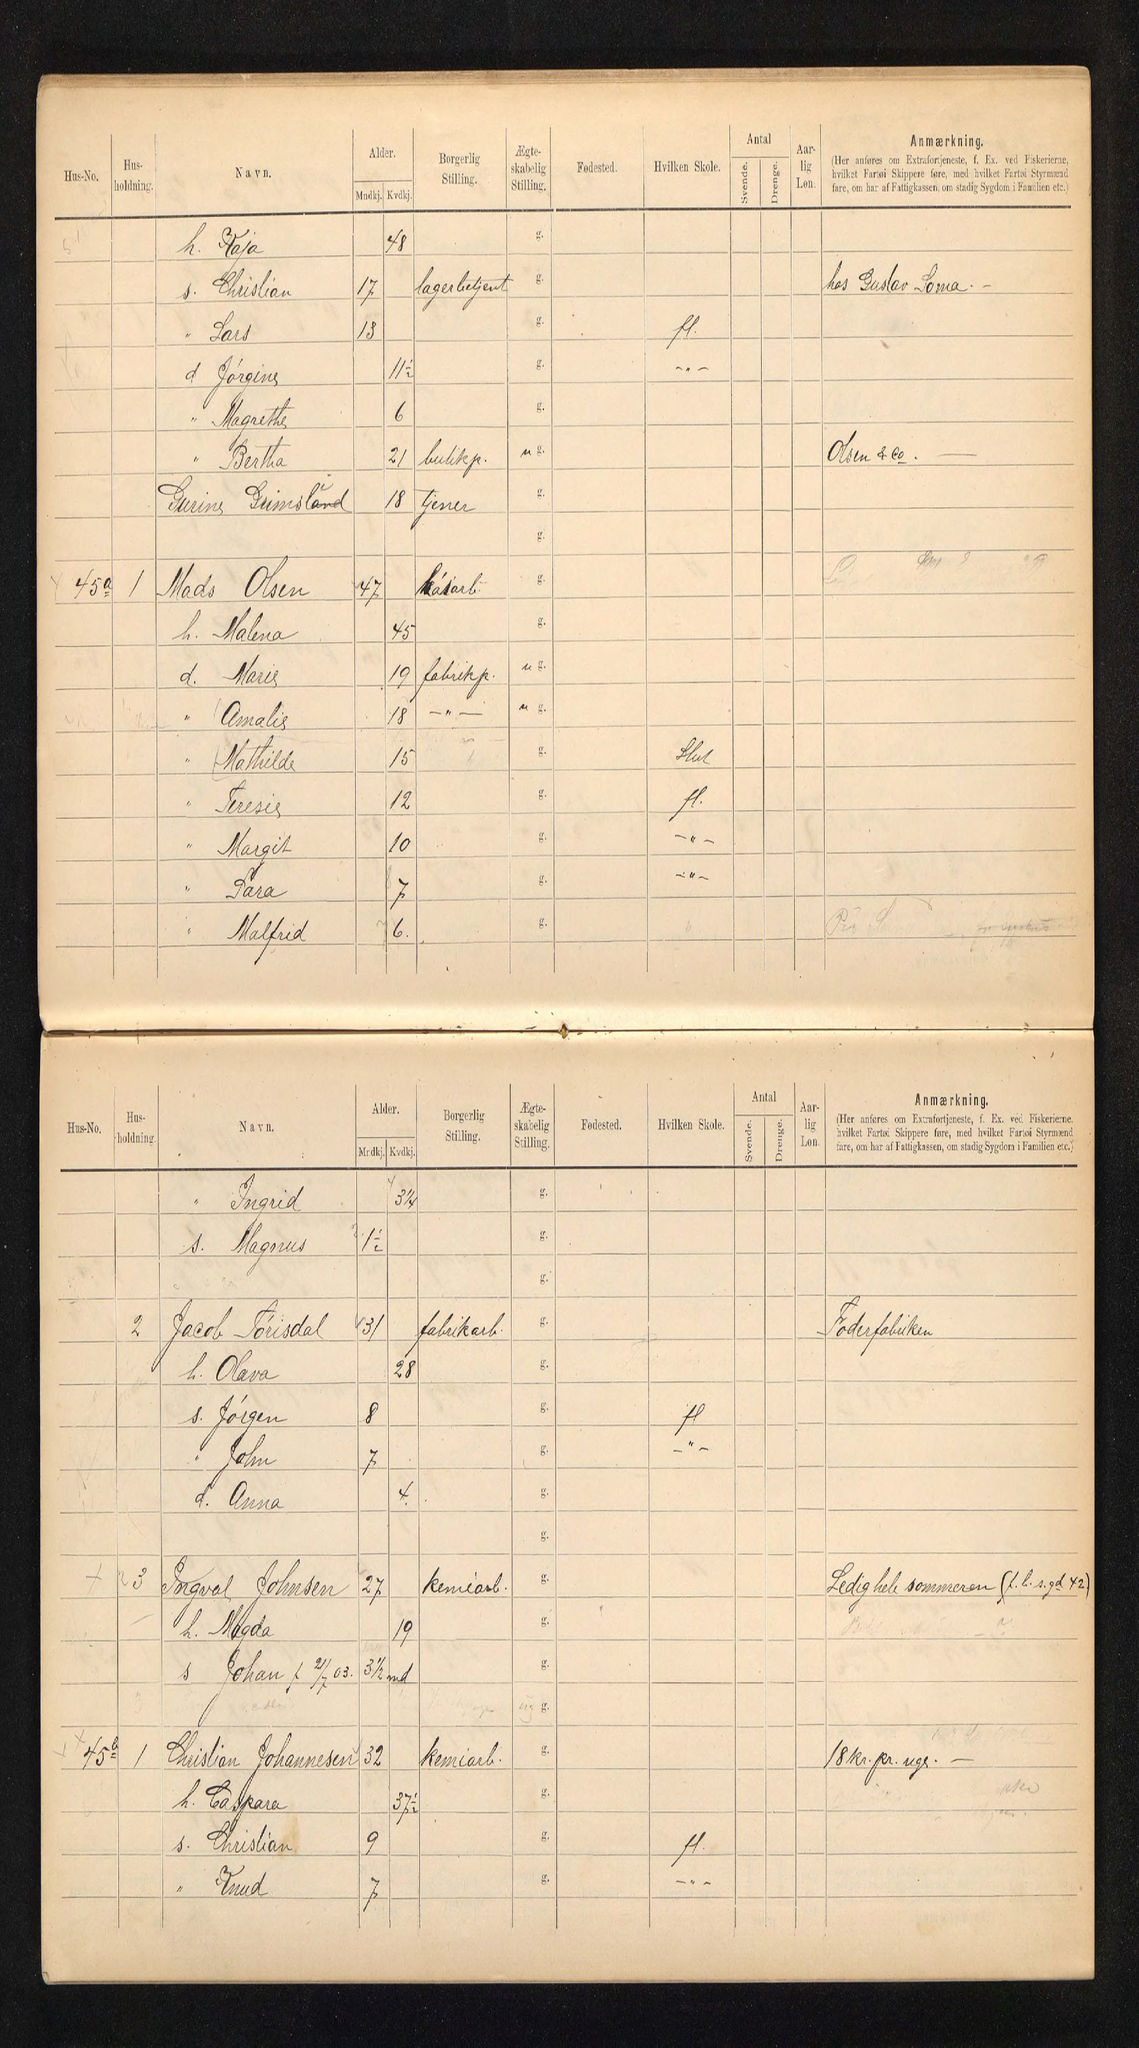 Hus-No. Hus-holdning. Navn. Alder. Mndkj. Kvdkj. Borgerlig Stilling. Ægte-skabelig Stilling. Fødested. Hvilken Skole. Antal Svende. Drenge. Aar-lig Løn. Anmærkning.
(Her anføres om Extrafortjeneste, f. Ex. ved Fiskerierne, hvilket Fartøi Skippere føre, med hvilket Fartøi Styrmænd fare, om har af Fattigkassen, om stadig Sygdom i Familien etc.)
h. Kaja 48 g.
s. Christian 17 lagerbetjent g. hos Gustav Soma. -
" Lars 13 g. fl.
d Jørgine 11½ g. -"-
" Magrethe 6 g.
" Bertha 21 butikp. u g. Olsen & Co. —
Gurine Grimsland 18 tjener g.
g.
45a 1 Mads Olsen 47 g.
h. Malena 45 g.
d. Marie 19 fabrikp. u g.
" Amalie 18 -"- u g.
" Mathilde 15 g. Slut
" Teresie 12 g. fl.
" Margit 10 g. -"-
" Sara 7 g. -"-
" Malfrid 6. g.
Hus-No. Hus-holdning. Navn. Alder. Mndkj. Kvdkj. Borgerlig Stilling. Ægte-skabelig Stilling. Fødested. Hvilken Skole. Antal Svende. Drenge. Aar-lig Løn. Anmærkning.
(Her anføres om Extrafortjeneste, f. Ex. ved Fiskerierne, hvilket Fartøi Skippere føre, med hvilket Fartøi Styrmænd fare, om har af Fattigkassen, om stadig Sygdom i Familien etc.)
" Ingrid 3¼ g.
s. Magnus 1½ g.
g.
2 Jacob Tørisdal 31 fabrikarb. g. Foderfabriken
h. Olava 28 g.
s. Jørgen 8 g. fl
" John 7 g. -"-
d. Anna 4. g.
g.
3 Ingval Johnsen 27 kemiarb. g. Ledig hele sommeren (f. b. s. gd 42)
h. Magda 19 g.
s Johan f 21/7 03. 3½ md g.
g.
45b 1 Christian Johannesen 32 kemiarb. g. 18 kr. pr. uge. —
h. Caspara 37½ g.
s. Christian 9 g. fl.
" Knud 7 g. -"-